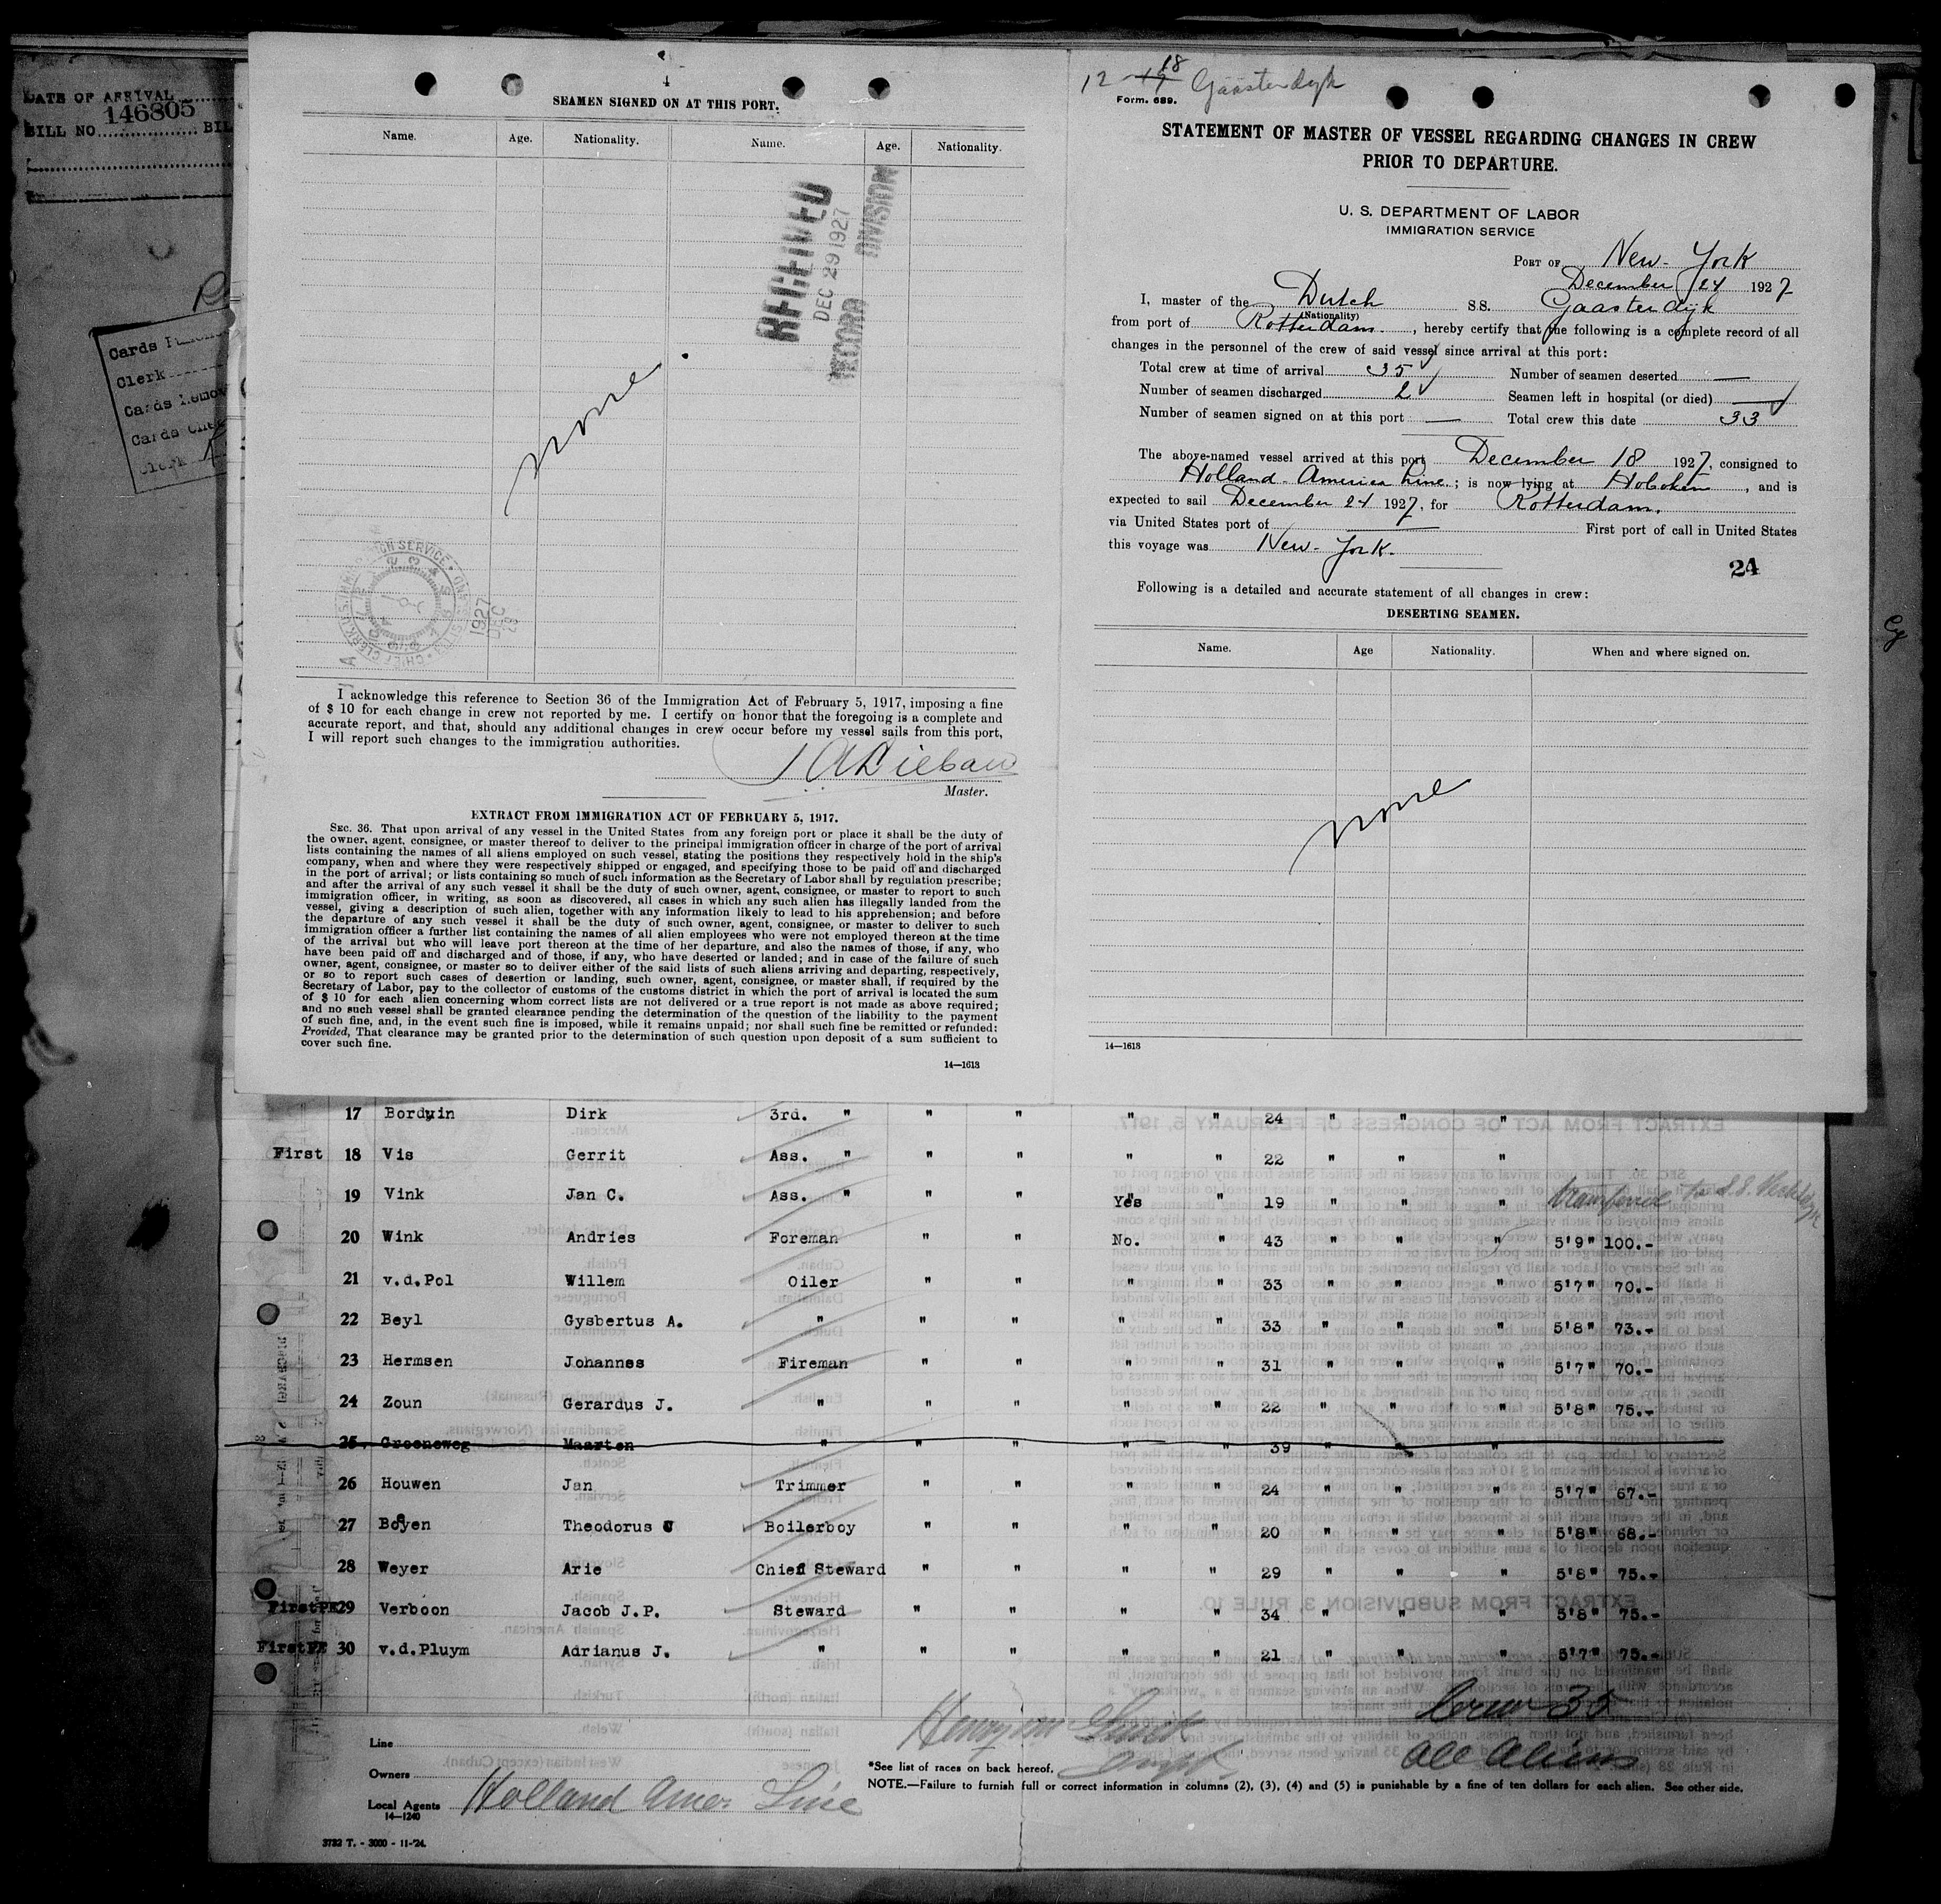 DATE OF ARRIVAL
146805
BILL NO.
Cards
Clerk
Cards
Cards
Clerk
4
SEAMEN SIGNED ON AT THIS PORT.
Name. Age. Nationality. Name. Age. Nationality.
RECEIVED
DEC 29 1927
RECORD DIVISION
none
1927
DEC
I acknowledge this reference to Section 36 of the Immigration Act of February 5, 1917, imposing a fine
of $ 10 for each change in crew not reported by me. I certify on honor that the foregoing is a complete and
accurate report, and that, should any additional changes in crew occur before my vessel sails from this port,
I will report such changes to the immigration authorities.
Master.
EXTRACT FROM IMMIGRATION ACT OF FEBRUARY 5, 1917.
SEC. 36. That upon arrival of any vessel in the United States from any foreign port or place it shall be the duty of
the owner, agent, consignee, or master thereof to deliver to the principal immigration officer in charge of the port of arrival
lists containing the names of all aliens employed on such vessel, stating the positions they respectively hold in the ship's
company, when and where they were respectively shipped or engaged, and specifying those to be paid off and discharged
in the port of arrival; or lists containing so much of such information as the Secretary of Labor shall by regulation prescribe;
and after the arrival of any such vessel it shall be the duty of such owner, agent, consignee, or master to report to such
immigration officer, in writing, as soon as discovered, all cases in which any such alien has illegally landed from the
vessel, giving a description of such alien, together with any information likely to lead to his apprehension; and before
the departure of any such vessel it shall be the duty of such owner, agent, consignee, or master to deliver to such
immigration officer a further list containing the names of all alien employees who were not employed thereon at the time
of the arrival but who will leave port thereon at the time of her departure, and also the names of those, if any, who
have been paid off and discharged and of those, if any, who have deserted or landed; and in case of the failure of such
owner, agent, consignee, or master so to deliver either of the said lists of such aliens arriving and departing, respectively,
or so to report such cases of desertion or landing, such owner, agent, consignee, or master shall, if required by the
Secretary of Labor, pay to the collector of customs of the customs district in which the port of arrival is located the sum
of $ 10 for each alien concerning whom correct lists are not delivered or a true report is not made as above required;
and no such vessel shall be granted clearance pending the determination of the question of the liability to the payment
of such fine, and, in the event such fine is imposed, while it remains unpaid; nor shall such fine be remitted or refunded:
Provided, That clearance may be granted prior to the determination of such question upon deposit of a sum sufficient to
cover such fine.
14—1613
12 - 19 18 Gaasterdyk
Form. 689.
STATEMENT OF MASTER OF VESSEL REGARDING CHANGES IN CREW
PRIOR TO DEPARTURE.
U. S. DEPARTMENT OF LABOR
IMMIGRATION SERVICE
PORT OF New-York
December 24 1927
I, master of the Dutch SS. Gaasterdijk
(Nationality)
from port of Rotterdam., hereby certify that the following is a complete record of all
changes in the personnel of the crew of said vessel since arrival at this port:
Total crew at time of arrival 35 Number of seamen deserted —
Number of seamen discharged 2 Seamen left in hospital (or died) —
Number of seamen signed on at this port — Total crew this date 33
The above-named vessel arrived at this port December 18 1927, consigned to
Holland-America Line.; is now lying at Hoboken, and is
expected to sail December 24 1927, for Rotterdam.
via United States port of — First port of call in United States
this voyage was New-York.
24
Following is a detailed and accurate statement of all changes in crew:
DESERTING SEAMEN.
Name. Age Nationality. When and where signed on.
none
14—1613
17 Borduin Dirk 3rd. " " " " " 24 " " "
First 18 Vis Gerrit Ass. " " " " " 22 " " "
19 Vink Jan C. Ass. " " " Yes " 19 " " " transferred to S.S.
20 Wink Andries Foreman " " No. " 43 " " " 5'9" 100.-
21 v.d.Pol Willem Oiler " " " " 33 " " " 5'7" 70.-
22 Beyl Gysbertus A. " " " " " 33 " " " 5'8" 73.-
23 Hermsen Johannes Fireman " " " " 31 " " " 5'7" 70.-
24 Zoun Gerardus J. " " " " " 22 " " " 5'8" 75.-
25 Groeneweg Maarten " " " " " 39 " " "
26 Houwen Jan Trimmer " " " " 24 " " " 5'7" 67.-
27 Boyen Theodorus Boilerboy " " " " 20 " " " 5'8" 68.-
28 Weyer Arie Chief Steward " " " " 29 " " " 5'8" 75.-
First 29 Verboon Jacob J.P. Steward " " " " 34 " " " 5'8" 75.-
First 30 v.d.Pluym Adrianus J. " " " " " 21 " " " 5'7" 75.-
Crew 35
All Aliens
Line
Owners
Local Agents Holland Amer. Line
14—1240
*See list of races on back hereof.
NOTE.—Failure to furnish full or correct information in columns (2), (3), (4) and (5) is punishable by a fine of ten dollars for each alien. See other side.
3732 T. - 3000 - 11-'24.